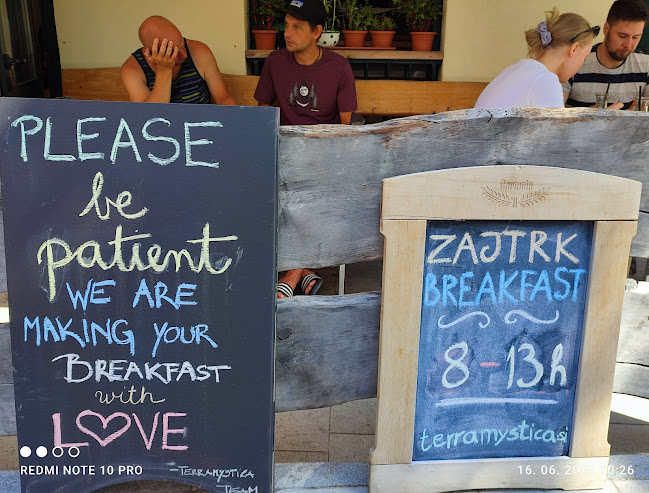 PLEASE
be
patient
WE ARE
MAKING YOUR
BREAKFAST
with
LOVE
-TERRAMYSTICA
TEAM
ZAJTRK
BREAKFAST
8-13h
terramystica.si
REDMI NOTE 10 PRO
16. 06.